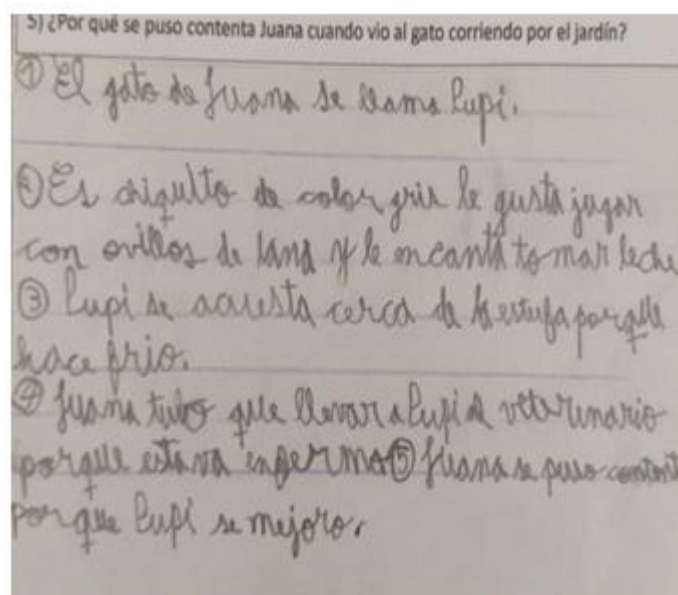 5) ¿Por qué se puso contenta Juana cuando vio al gato corriendo por el jardín?
① El gato de Juana se llama Lupi.
② Es chiquito de color gris le gusta jugar
con ovillos de lana y le encanta tomar leche
③ Lupi se acuesta cerca de la estufa porque
hace frio.
④ Juana tubo que llevar a Lupi al veterinario
porque estava enfermo ⑤ Juana se puso content
porque Lupi se mejoro.